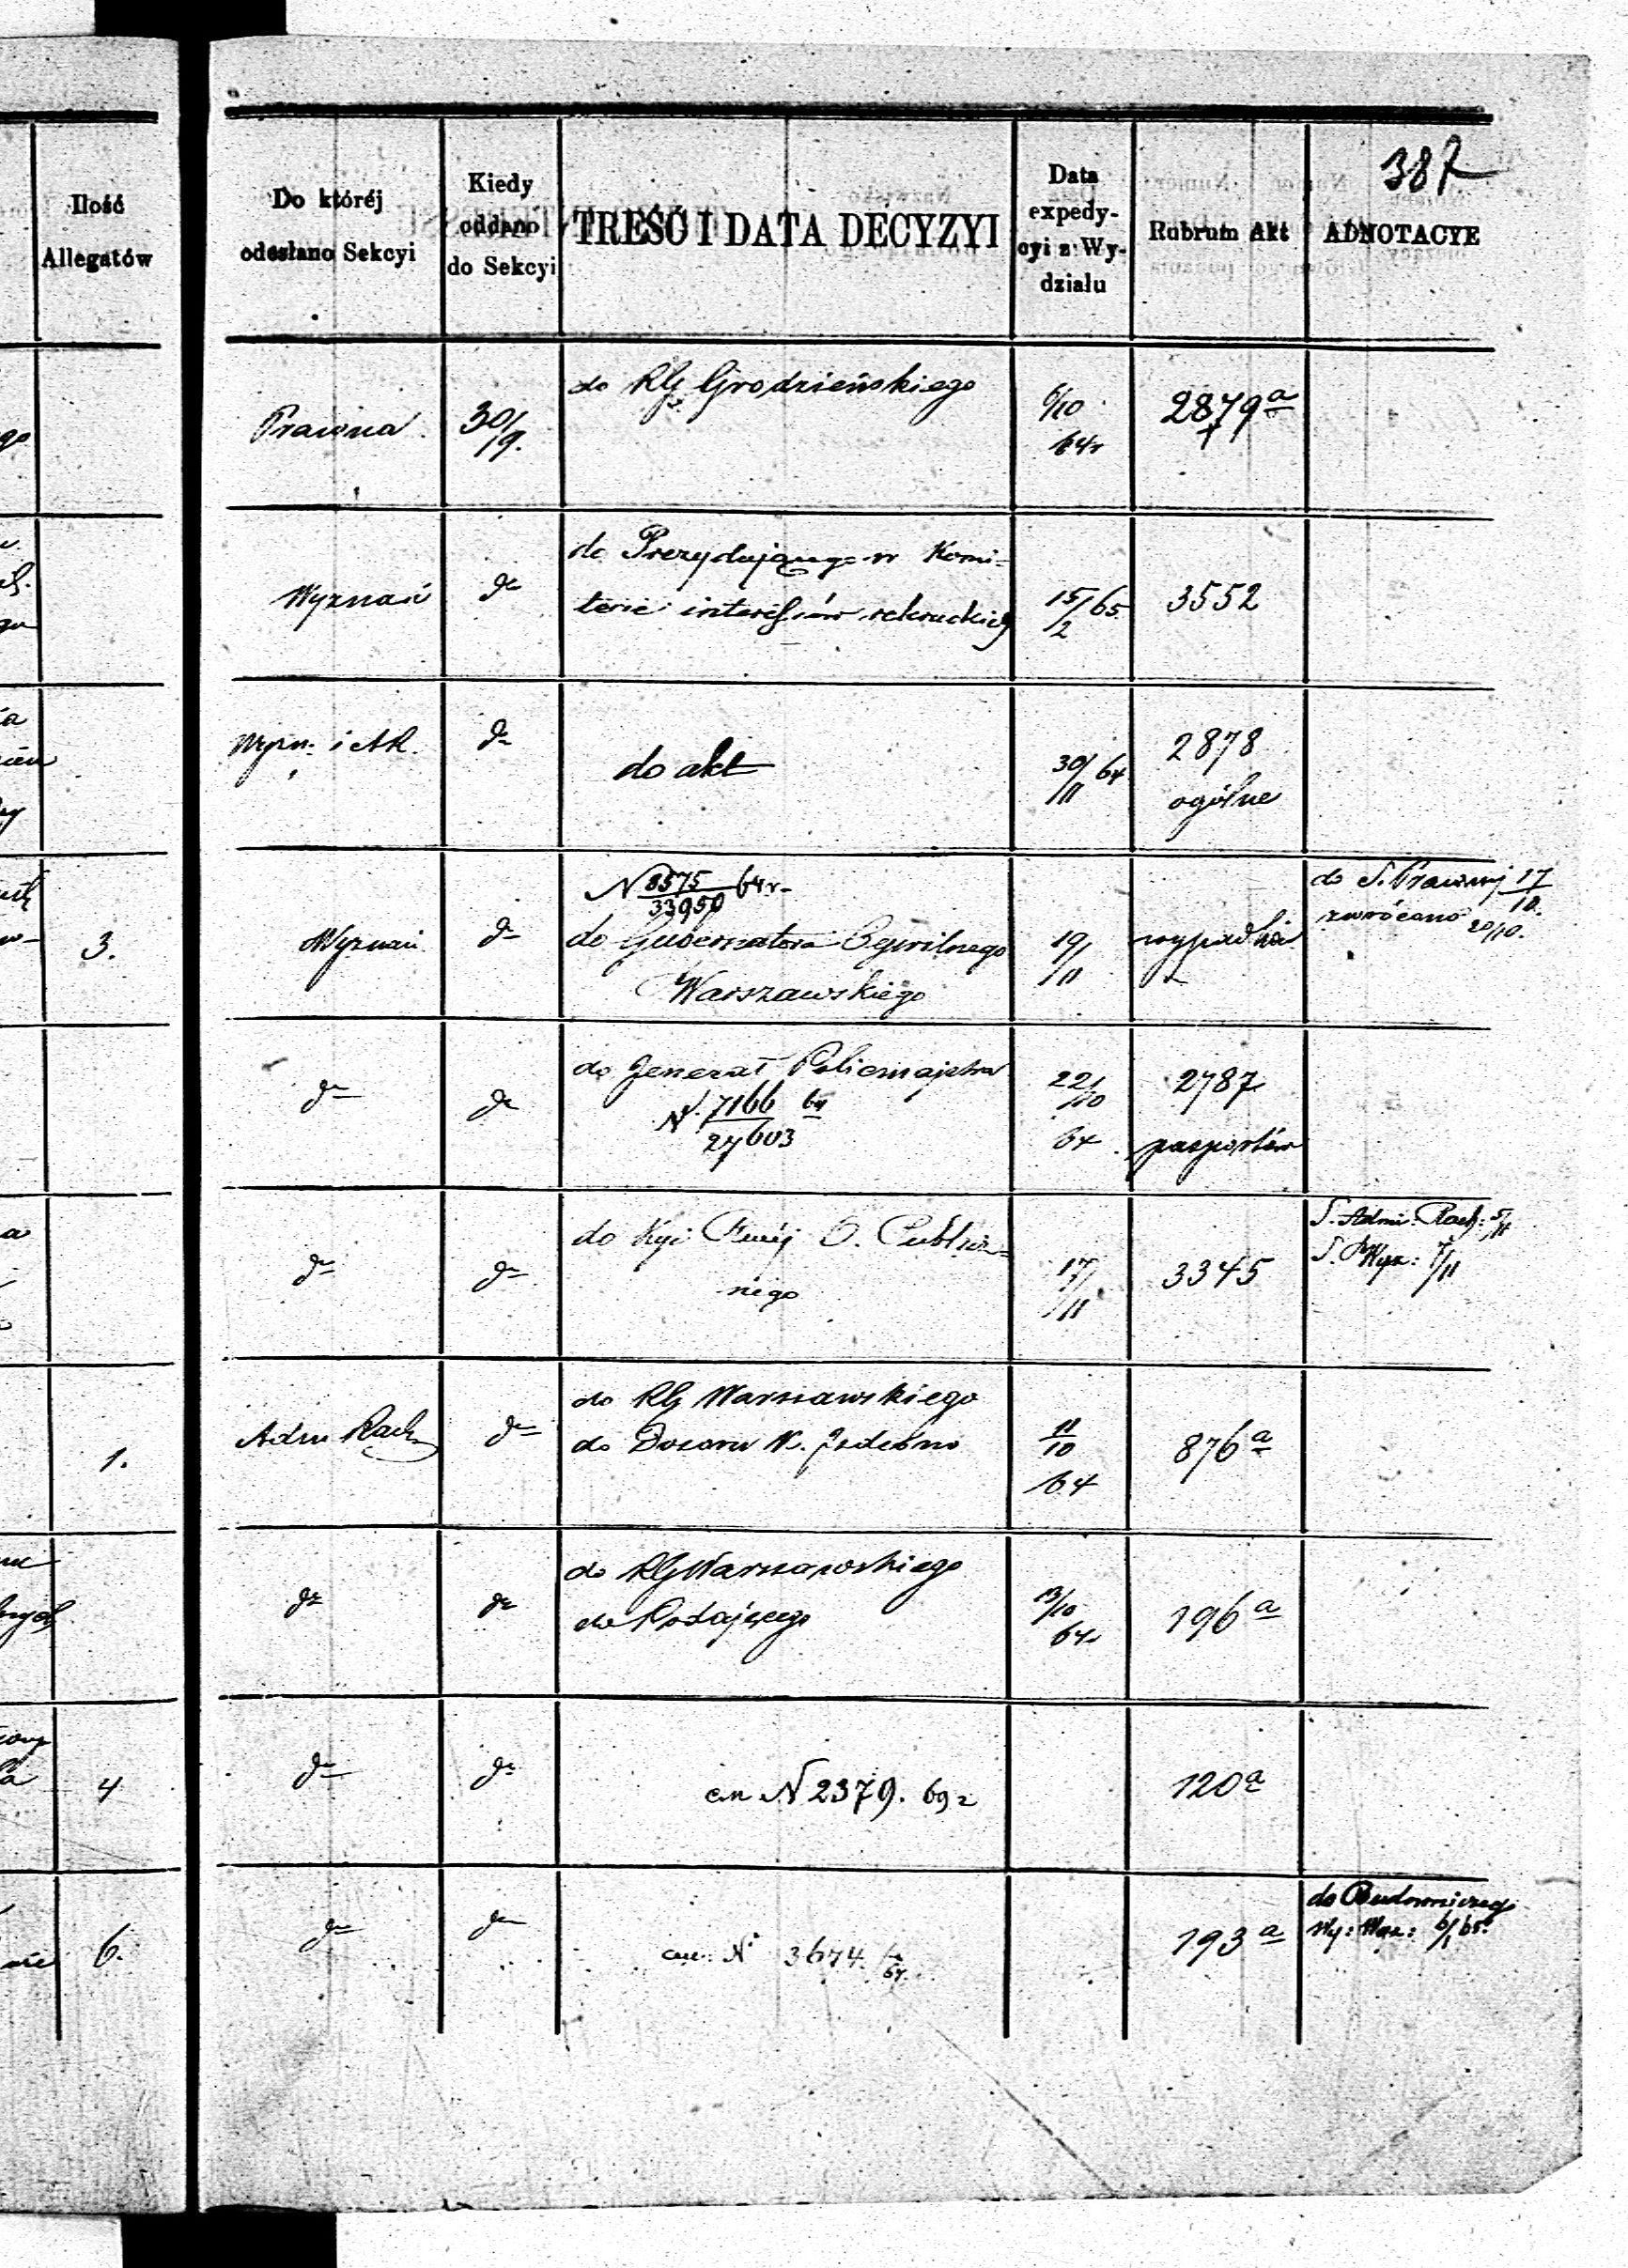 387
Ilość
Allegatów
Do któréj
odesłano Sekcyi
Kiedy
oddano
do Sekcyi
TREŚĆ I DATA DECYZYI
Data
expedy-
cyi z Wy-
działu
Rubrum Akt
ADNOTACYE
Prawna
30/9.
do RG Grodzieńskiego
6/10
64r
2879a
Wyznań
do
do Prezydującego w Komi-
tecie interessów rekruckich
15/2 65
3552
Wyzn: i AR.
do
do akt
30/11 64
2878
ogólne
3.
Wyznań
do
N 8575/33950 64r
do Gubernatora Cywilnego
Warszawskiego
19/11
wypadków
do S. Prawnej 17/10.
zwrócono 20/10.
do
do
do Generał Policmajstra
N. 7166/27603 64
22/10
64
2787
paszportów
do
do
do Kyi Rząd. O. Publicz-
nego
17/11
3345
S. Admi: Rach: 5/11
S. Wyz: 7/11
1.
Adm Rach
do
do RG Warszawskiego
do Dozoru N.
11/10
64
876a
do
do
do RG Warszawskiego
do Podającego
13/10
64r
196a
4
do
do
cn N 2379. 69r
120a
6.
do
do
cu: No 3674. 64
193a
do Budowniczego
Wy: Wyz: 6/1 65.